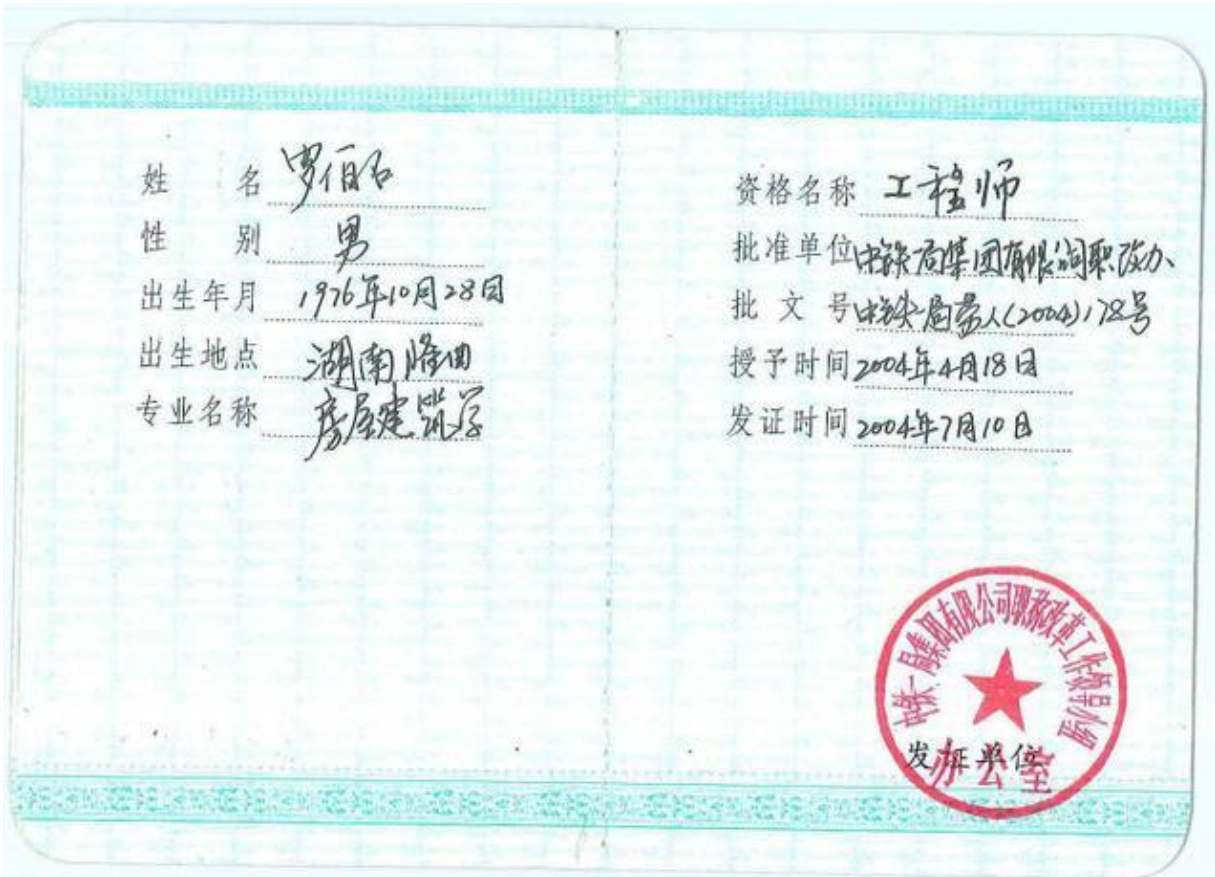 姓名 罗伯石
性别 男
出生年月 1976年10月28日
出生地点 湖南隆回
专业名称 房屋建筑学
资格名称 工程师
批准单位 中铁一局集团有限公司职改办
批文号 中铁一局劳人(2004)178号
授予时间 2004年4月18日
发证时间 2004年7月10日
中铁一局集团有限公司职称改革工作领导小组
办公室
发证单位